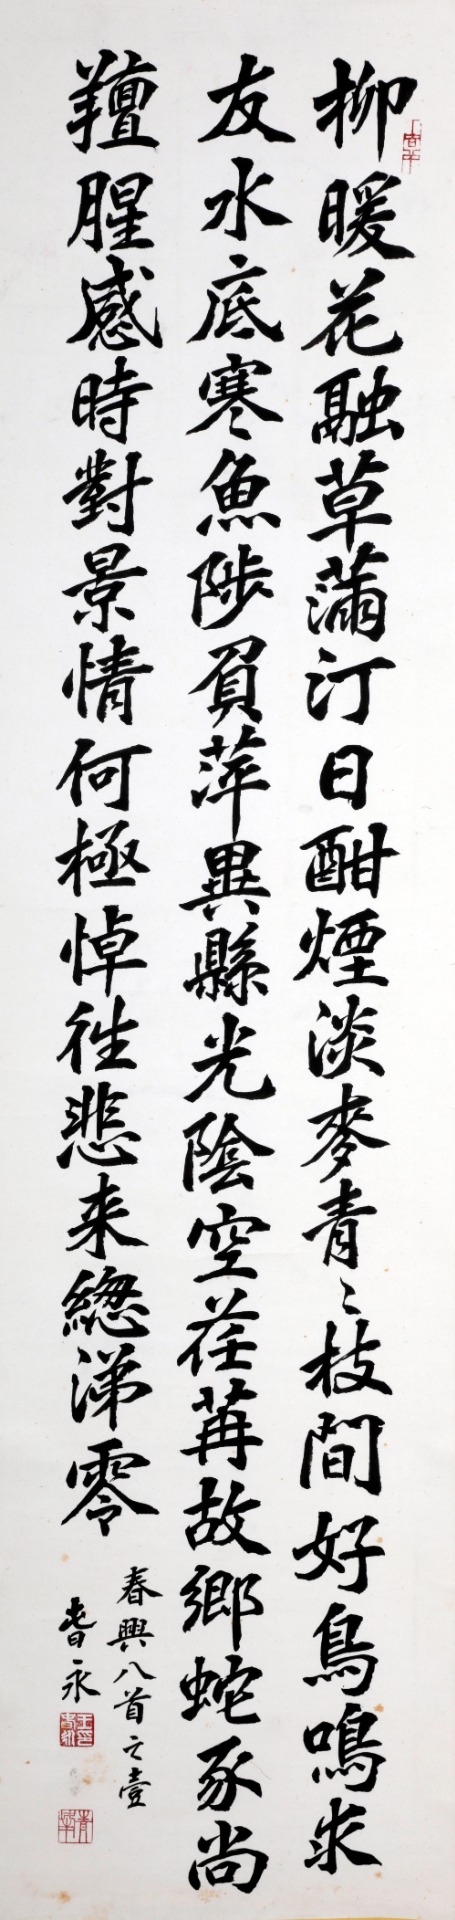 柳暖花融草滿汀日酣煙淡麥青〻枝間好鳥鳴求
友水底寒魚陟負萍異縣光陰空荏苒故鄉蛇豕尚
羶腥感時對景情何極悼徃悲来緫涕零
春興八首之壹
耆永